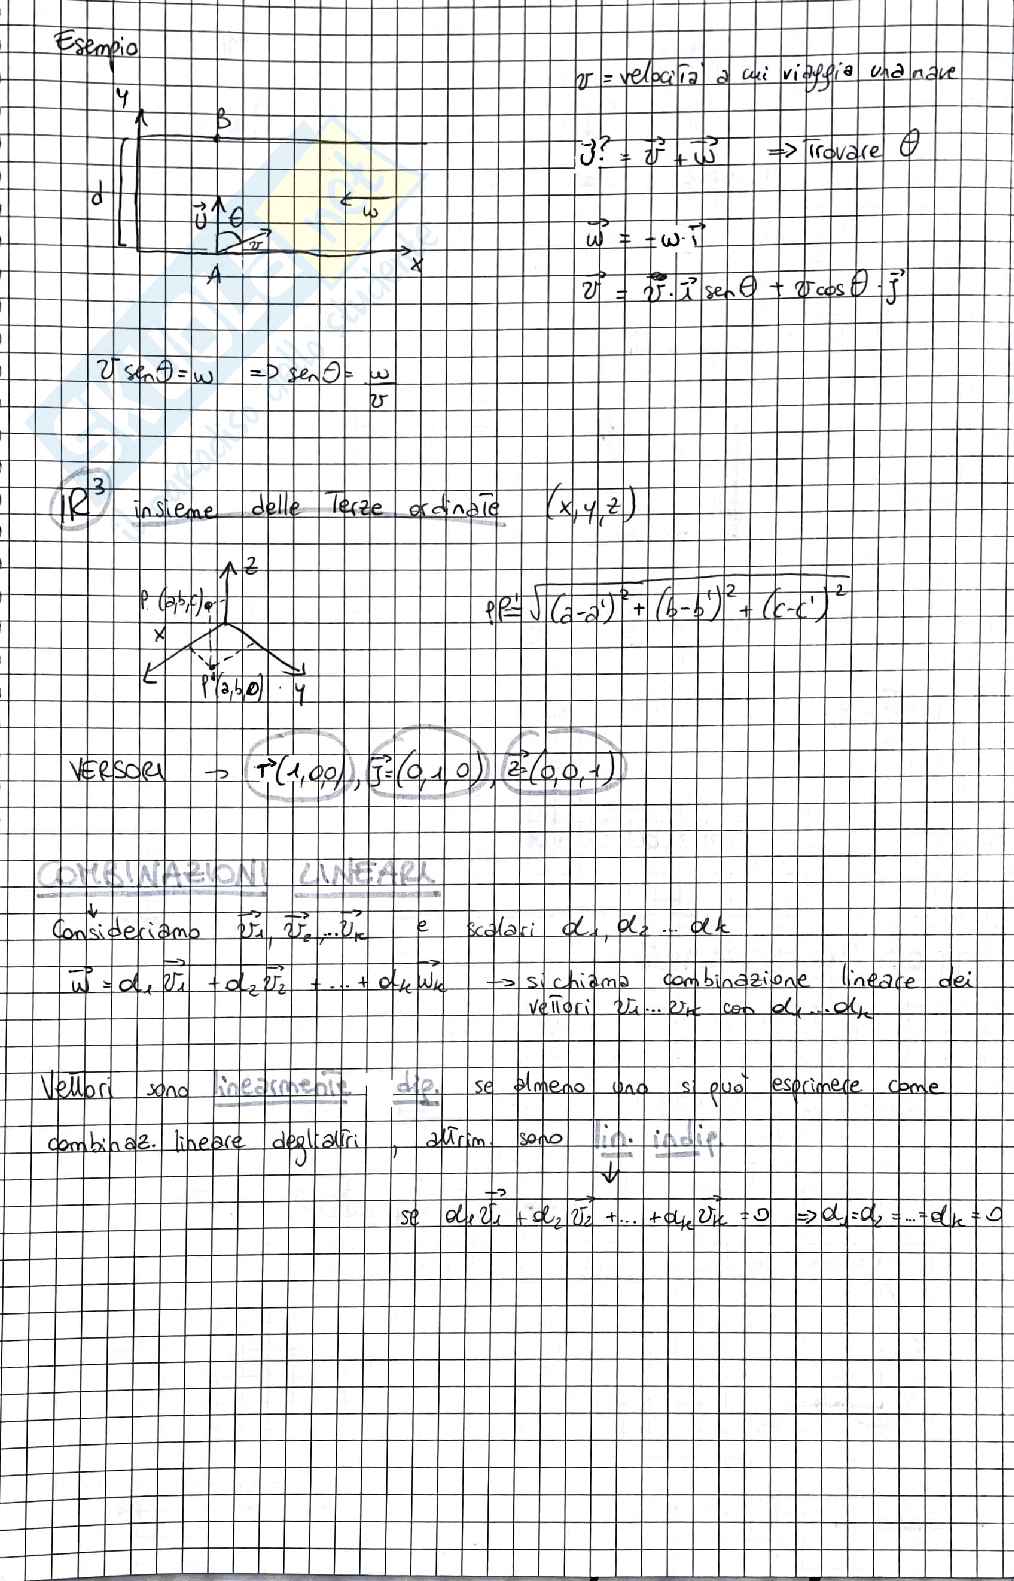 Esempio
y
B
d
U⃗ θ
w
v
A
x
v = velocità a cui viaggia una nave
U⃗? = v⃗ + w⃗ => Trovare θ
w⃗ = -w·i⃗
v⃗ = v·i⃗ senθ + v cosθ·j⃗
v senθ = w => senθ = w/v
ℝ³ insieme delle Terze ordinate (x,y,z)
z
P (a,b,c)
x
P'(a,b,0)
y
PP' = √(a-a')² + (b-b')² + (c-c')²
VERSORI → i⃗(1,0,0), j⃗=(0,1,0), z⃗=(0,0,1)
COMBINAZIONI LINEARI
↓
Consideriamo v⃗₁, v⃗₂,...v⃗ₖ e scalari α₁, α₂ ... αk
w⃗ = α₁v⃗₁ + α₂v⃗₂ + ... + αₖw⃗ₖ → si chiama combinazione lineare dei
vettori v₁...vₖ con α₁...αₖ
Vettori sono linearmente dip. se almeno uno si può esprimere come
combinaz. lineare degli altri, altrim. sono lin. indip
↓
se α₁v⃗₁ + α₂v⃗₂ + ... + αₖv⃗ₖ = 0 => α₁=α₂=...=αₖ=0
SKUOLA.net